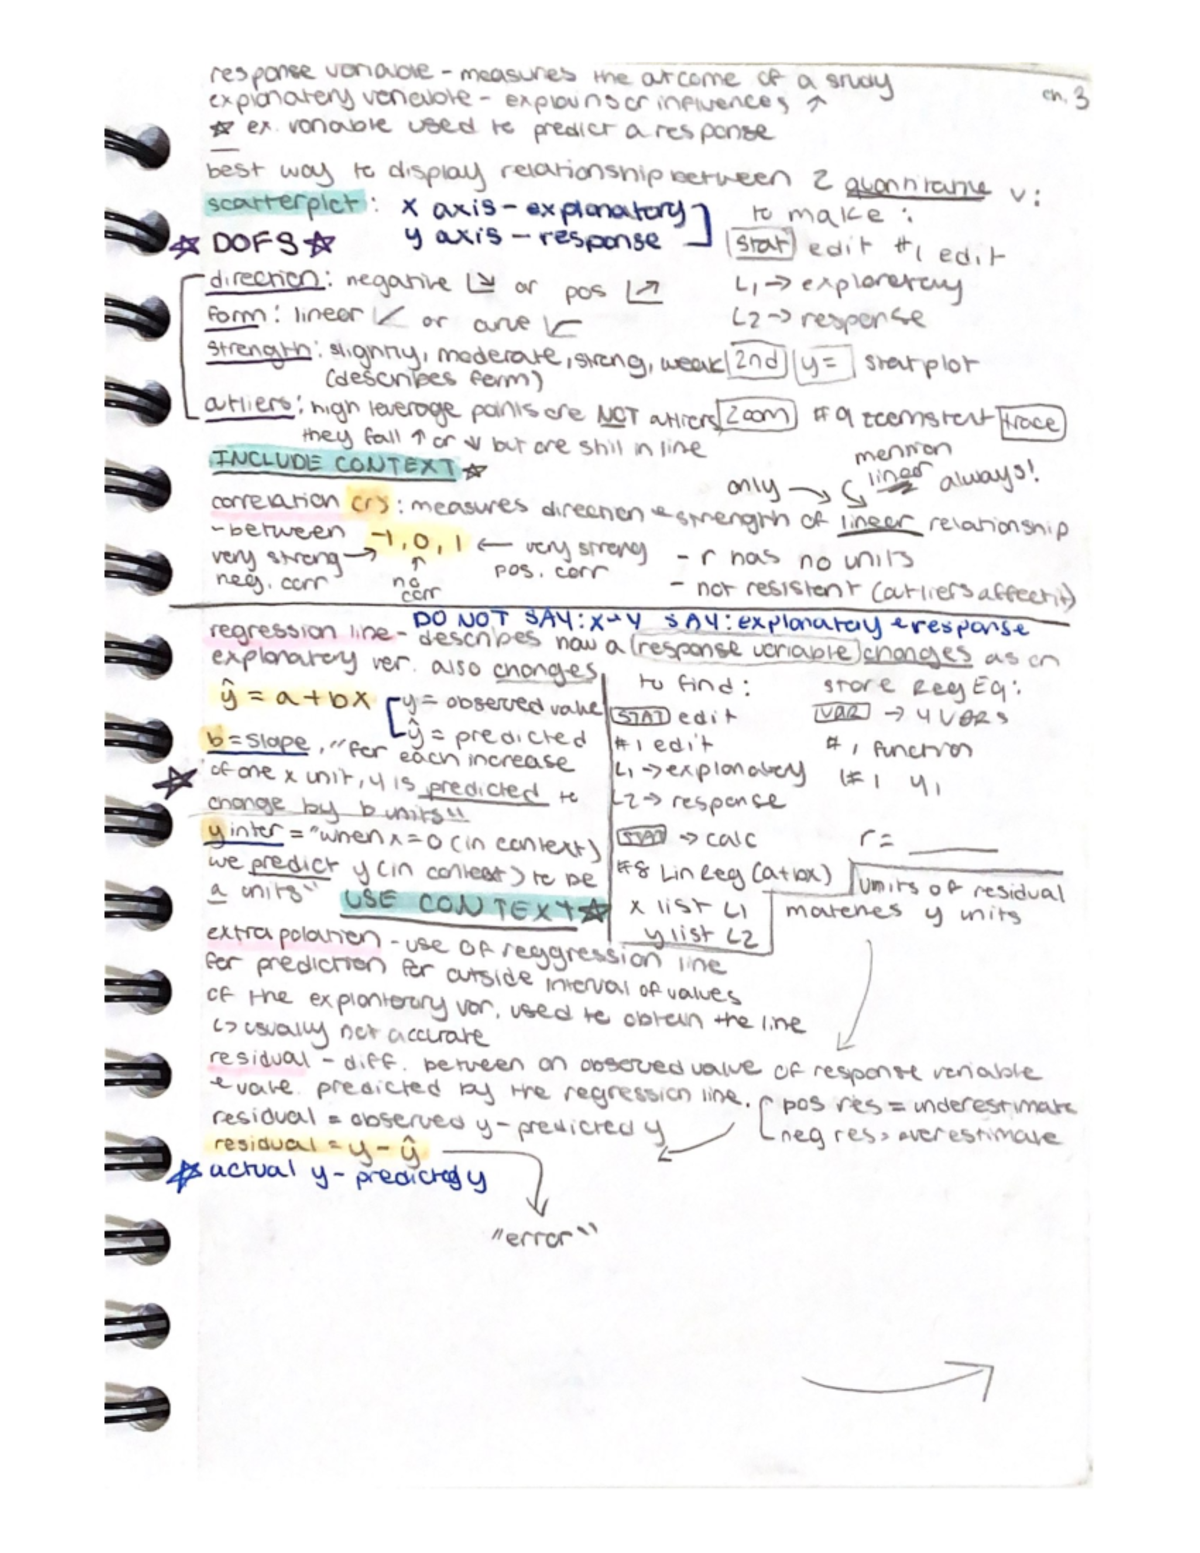 ch. 3
response variable - measures the outcome of a study
explanatory variable - explains or influences ↑
☆ ex. variable used to predict a response
best way to display relationship between 2 quantitative v:
scatterplot: x axis - explanatory
y axis - response
☆ DOFS ☆
to make:
stat edit #1 edit
L1 → explanatory
L2 → response
2nd y= statplot
zoom #9 zoomstat trace
direction: negative or pos
form: linear or curve
strength: slightly, moderate, strong, weak
(describes form)
outliers: high leverage points are NOT outliers
they fall ↑ or ↓ but are still in line
INCLUDE CONTEXT ☆
mention
only → linear always!
correlation (r): measures direction & strength of linear relationship
- between -1, 0, 1 ← very strong pos. corr
very strong → neg. corr
↑ no corr
- r has no units
- not resistent (outliers affect it)
DO NOT SAY: x→y SAY: explanatory & response
regression line - describes how a response variable changes as an
explanatory var. also changes
ŷ = a + bx
y = observed value
ŷ = predicted
b = slope, "for each increase
of one x unit, y is predicted to
change by b units"
y inter = "when x = 0 (in context)
we predict y (in context) to be
a units"
USE CONTEXT ☆
to find:
STAT edit
#1 edit
L1 → explanatory
L2 → response
STAT → calc
#8 LinReg (a+bx)
x list L1
y list L2
store RegEQ:
VAR → Y VARS
#1 function
#1 y1
r = ____
units of residual
matches y units
extrapolation - use of reggression line
for prediction for outside interval of values
of the explantorary var. used to obtain the line
↳ usually not accurate
residual - diff. between an observed value of response variable
& value. predicted by the regression line.
pos res = underestimate
neg res = overestimate
residual = observed y - predicted y
residual = y - ŷ
☆ actual y - predicted y
"error"